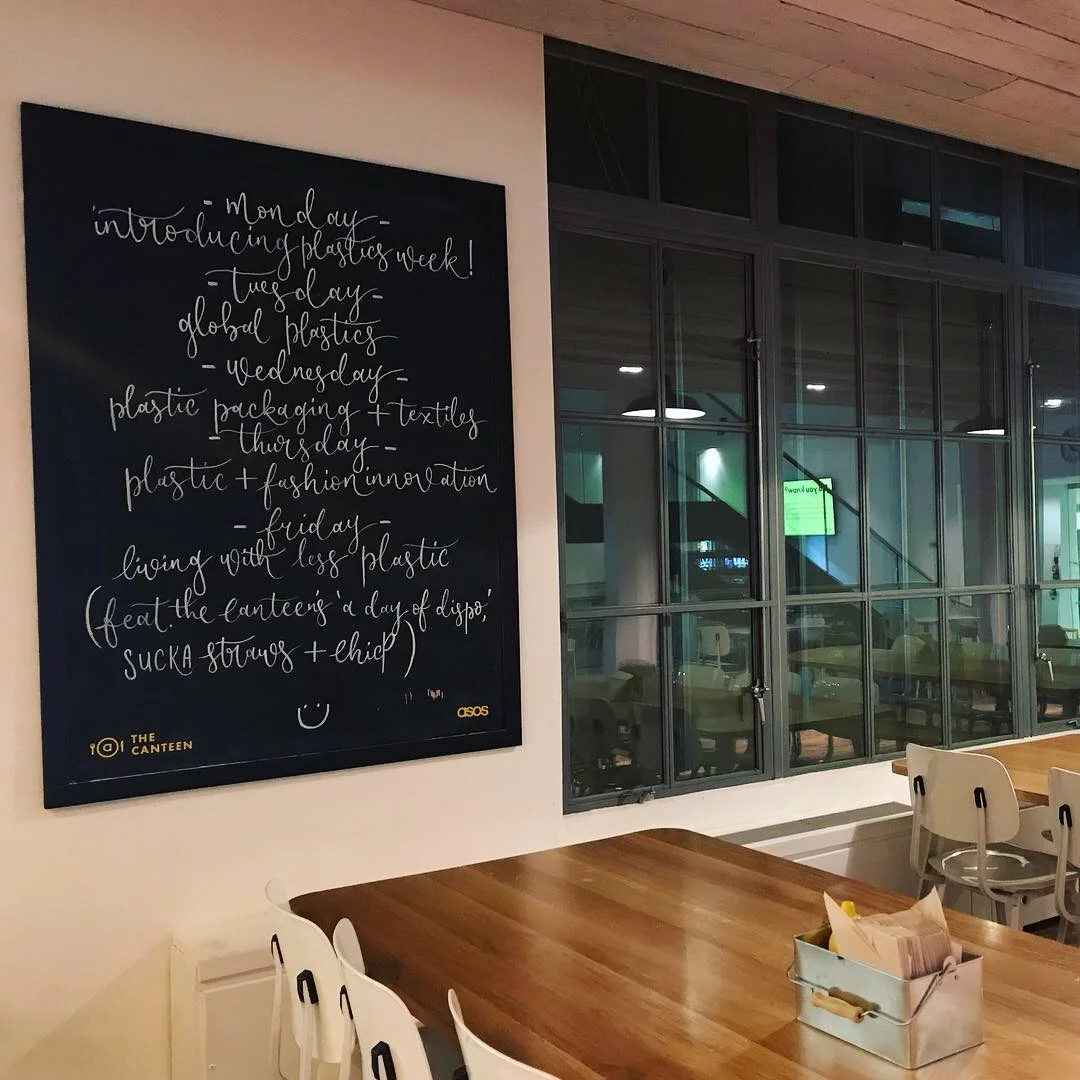 - monday -
introducing plastics week!
- tuesday -
global plastics
- wednesday -
plastic packaging + textiles
- thursday -
plastic + fashion innovation
- friday -
living with less plastic
(feat. the canteen's 'a day of dispo,'
SUCKA straws + chicp)
asos
THE
CANTEEN
you know?